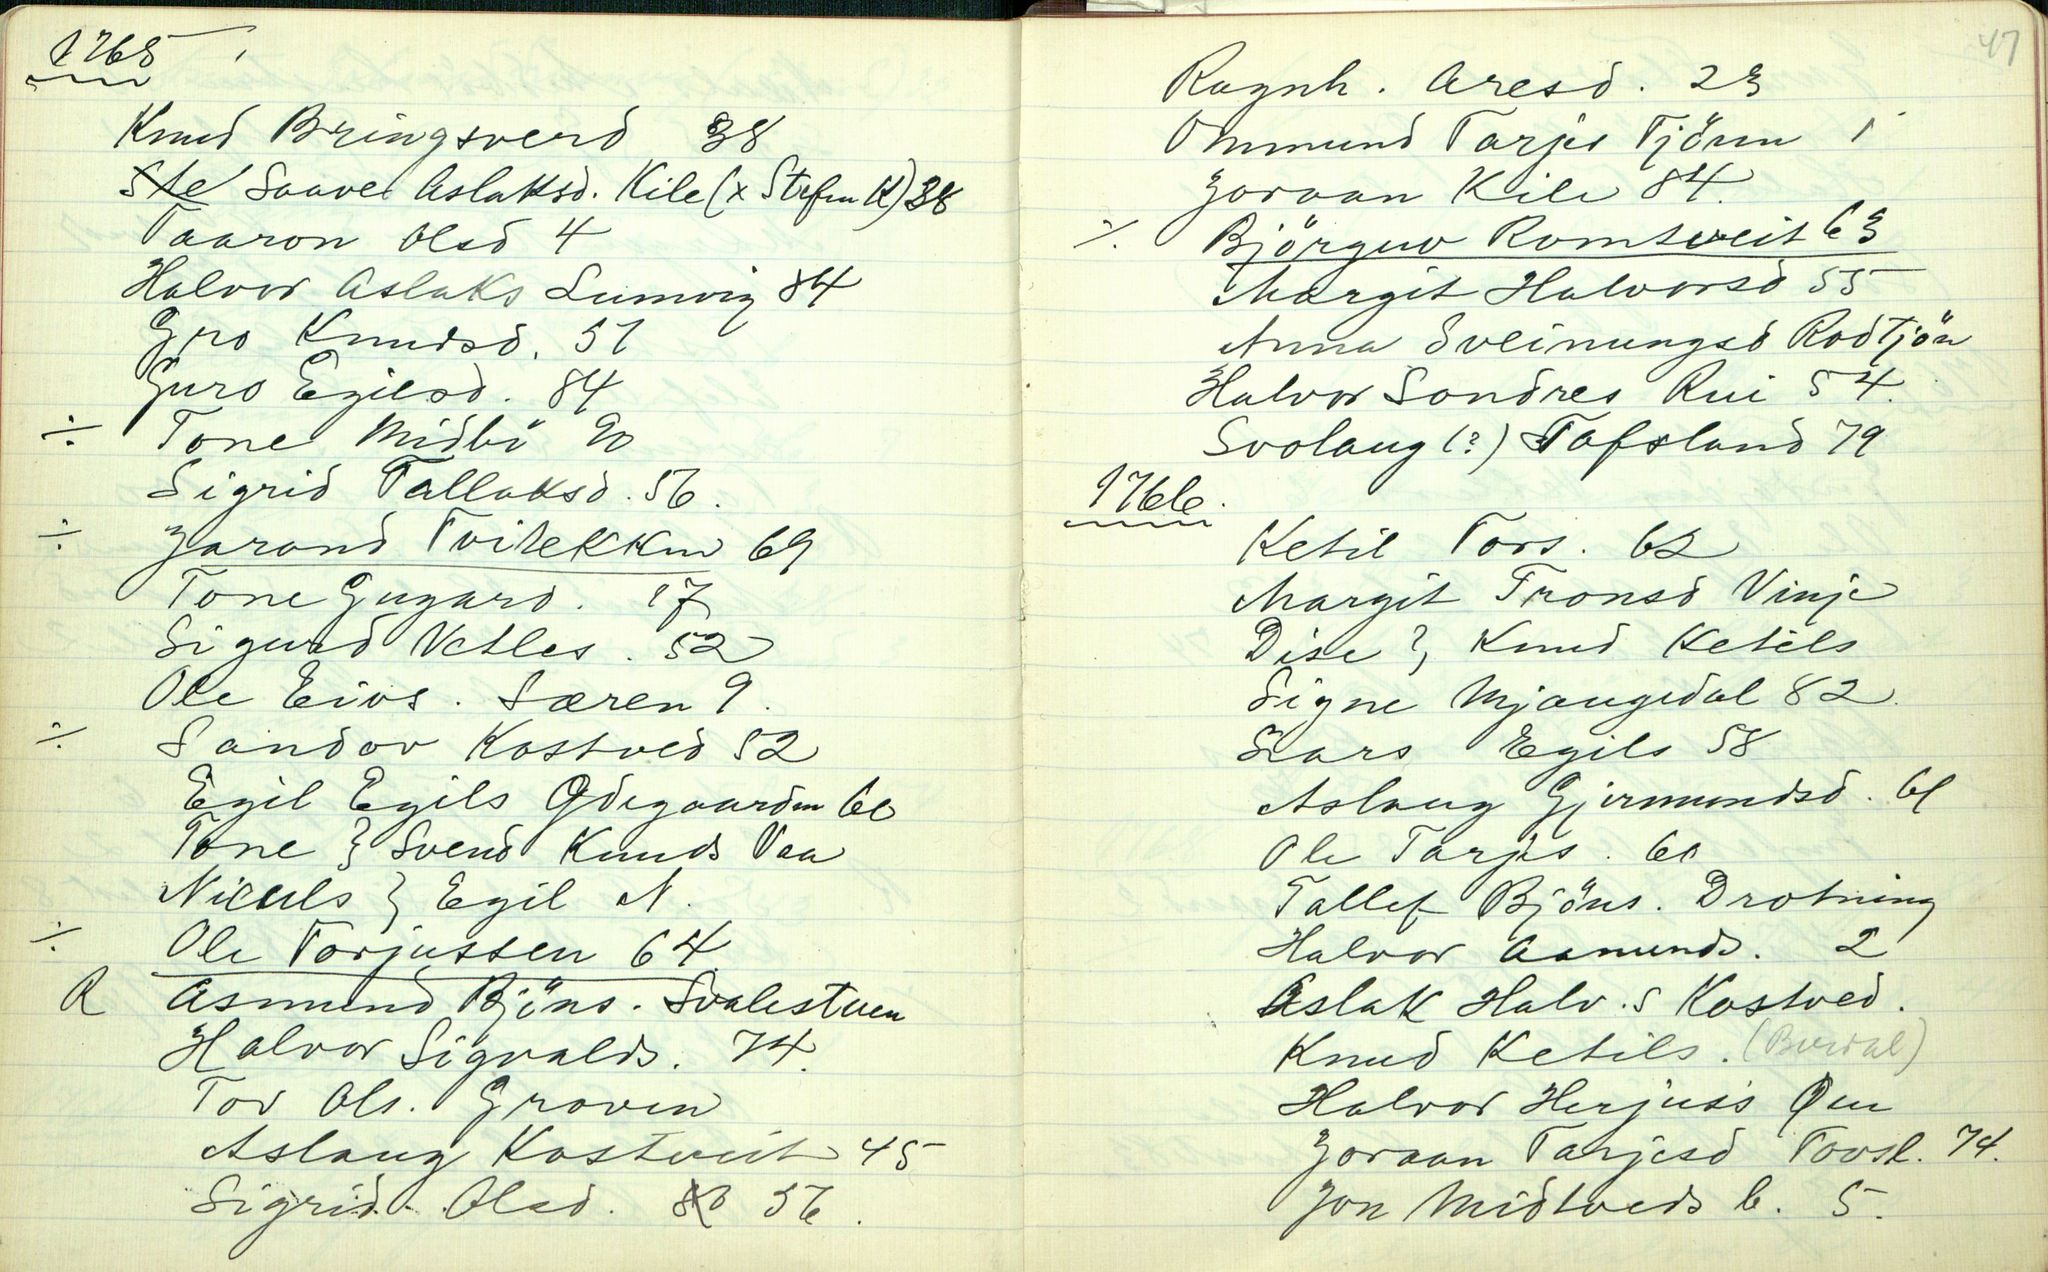 1765
Knud Bringsverd 38
Ste Saave Aslaksd. Kile (x Stefen K) 38
Taaron Olsd 4
Halvor Aslaks Lumvig 84
Gro Knudsd. 51
Guro Egilsd. 84
÷ Tone Midbö 90
Sigrid Tallaksd. 56.
÷ Jorand Tvitekken 69
Tone Gugard. 17
Sigurd Vetles. 52
Ole Eivs. Særen 9.
÷ Sandov Kostved 52
Egil Egils Ødegaarden 60
Tone } Svend Knuds Vaa
Niculs } Egil N.
÷ Ole Torjussen 64
R Asmund Bjöns. Svalestuen
Halvor Sigvalds. 74.
Tov Ols. Groven
Aslaug Kostveit 45
Sigrid Olsd. 56.
47
Ragnh. Aresd. 23
Ommund Tarjes Tjönn 1
Joraan Kile 84.
÷ Björguv Romtveit 63
Margit Halvorsd 55
Anna Sveinungsd Rodtjön
Halvor Sondres Rui 54.
Svolaug (?) Tafsland 79
1766.
Ketil Tors. 62
Margit Tronsd Vinje
Dise ?, Knud Ketils
Signe Mjaugedal 82.
Lars Egils 58
Aslaug Gjermundsd. 61
Ole Tarjes. 60
Tallef Bjöns. Drotning
Halvor Aamunds. 2
Aslak Halv.s Kostved.
Knud Ketils. (Berdal)
Halvor Herjus's Øen
Joraan Tarjesd Tovsl. 74.
Jon Midtveds b. 5.